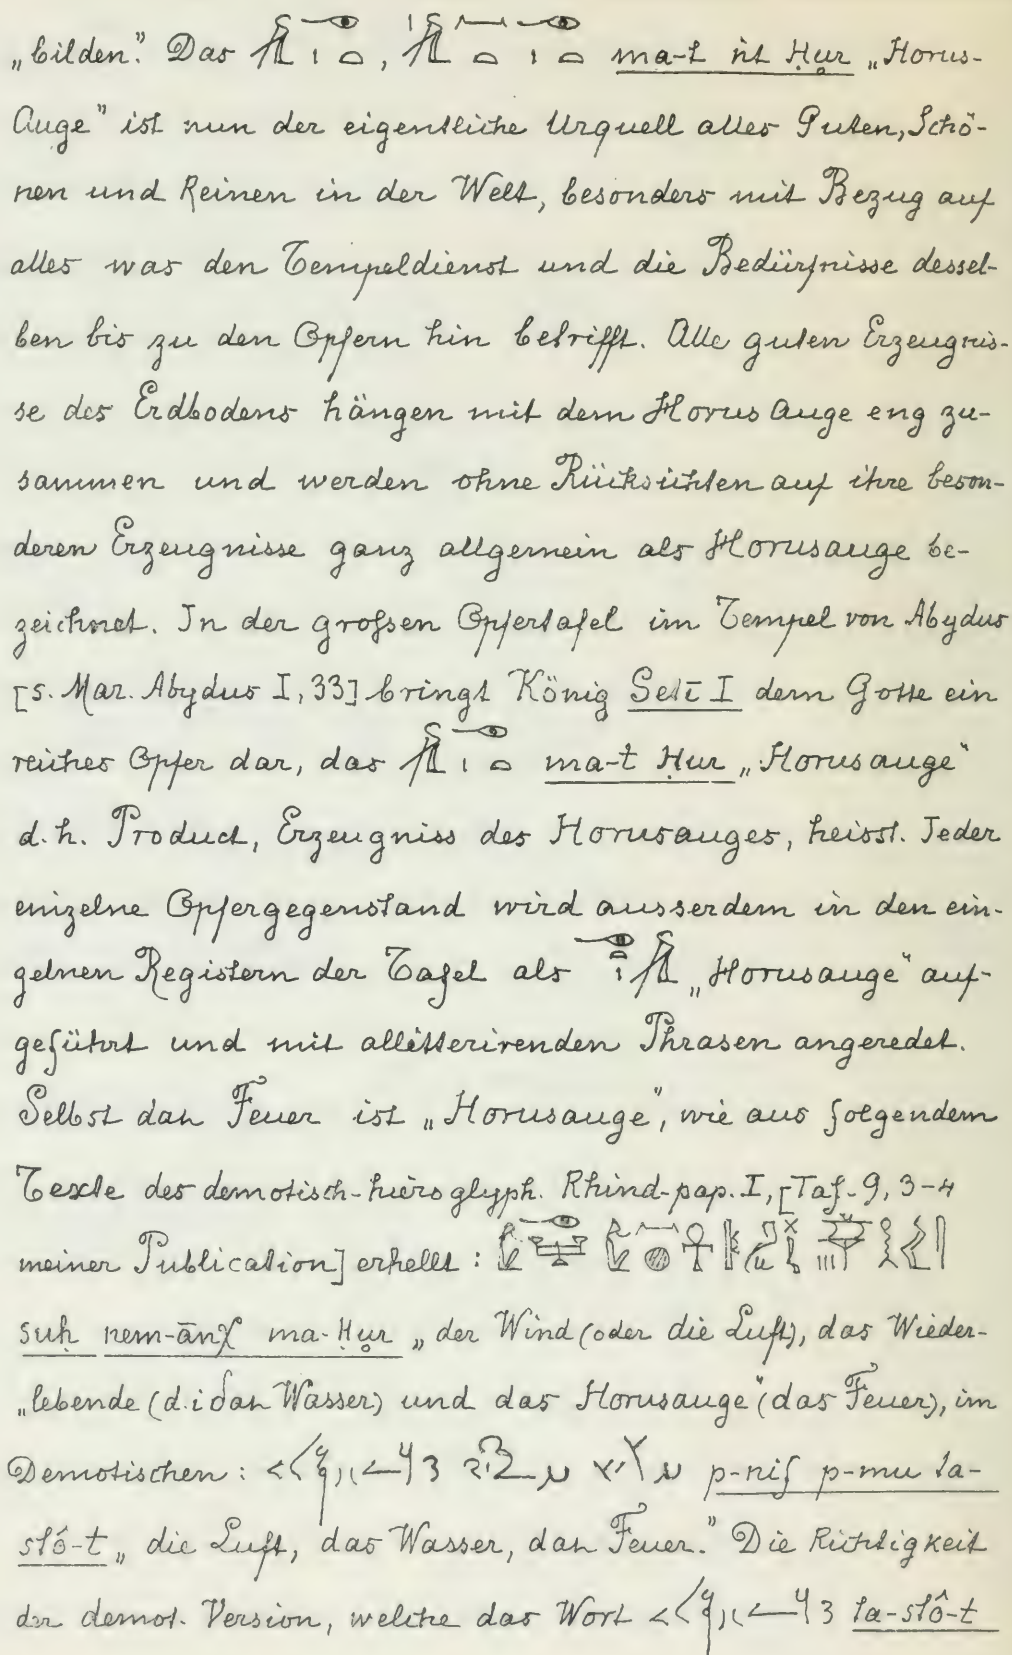 „bilden.” Das , ma-t nt Ḥur „Horus-
Auge” ist nun der eigentliche Urquell alles Guten, Schö-
nen und Reinen in der Welt, besonders mit Bezug auf
alles was den Tempeldienst und die Bedürfnisse dessel-
ben bis zu den Opfern hin betrifft. Alle guten Erzeugnis-
se des Erdbodens hängen mit dem Horus Auge eng zu-
sammen und werden ohne Rücksichten auf ihre beson-
deren Erzeugnisse ganz allgemein als Horusauge be-
zeichnet. In der grofsen Opfertafel im Tempel von Abydus
[s. Mar. Abydus I, 33] bringt König Seti I dem Gotte ein
reiches Opfer dar, das ma-t Ḥur „Horusauge”
d. h. Product, Erzeugniss des Horusauges, heisst. Jeder
einzelne Opfergegenstand wird ausserdem in den ein-
zelnen Registern der Tafel als „Horusauge” auf-
geführt und mit allitterirenden Phrasen angeredet.
Selbst das Feuer ist „Horusauge”, wie aus folgendem
Texte des demotisch-hieroglyph. Rhind-pap. I, [Taf. 9, 3-4
meiner Publication] erhellt :
suḥ nem-ānχ ma-Ḥur „der Wind (oder die Luft), das Wieder-
„lebende (d. i das Wasser) und das Horusauge” (das Feuer), im
Demotischen : p-nif p-mu ta-
stô-t „die Luft, das Wasser, das Feuer.” Die Richtigkeit
der demot. Version, welche das Wort ta-stô-t